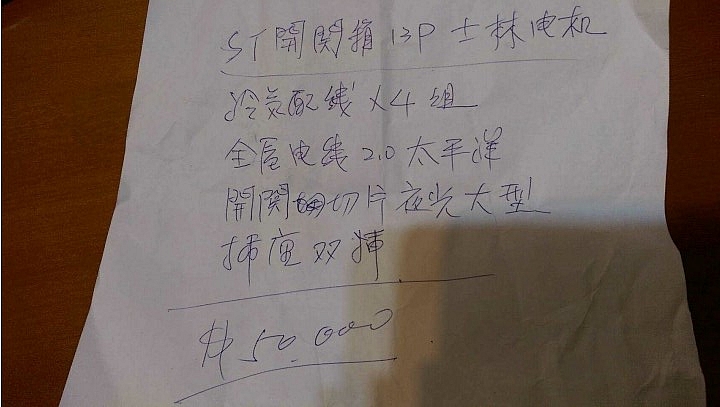 ST開関箱 13P 士林电机
冷気配线 x4組
全屋电线 2.0 太平洋
開関切片夜光大型
挿座双挿
$50.000